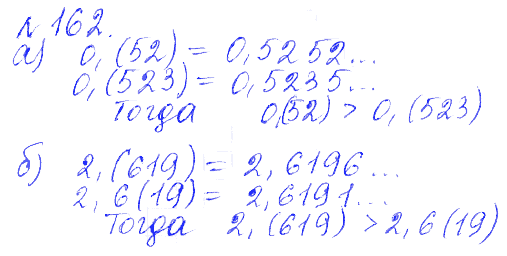 № 162.
а) 0,(52) = 0,5252...
0,(523) = 0,5235...
Тогда 0,(52) > 0,(523)
б) 2,(619) = 2,6196...
2,6(19) = 2,6191...
Тогда 2,(619) > 2,6(19)